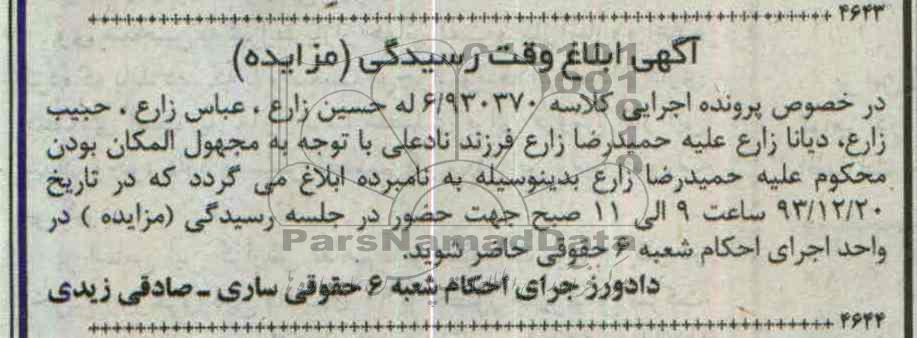 ۴۶۴۳
آگهی ابلاغ وقت رسیدگی (مزایده)
در خصوص پرونده اجرایی کلاسه ۶/۹۳۰۳۷۰ له حسین زارع ، عباس زارع ، حبیب
زارع، دیانا زارع علیه حمیدرضا زارع فرزند نادعلی با توجه به مجهول المکان بودن
محکوم علیه حمیدرضا زارع بدینوسیله به نامبرده ابلاغ می گردد که در تاریخ
۹۳/۱۲/۲۰ ساعت ۹ الی ۱۱ صبح جهت حضور در جلسه رسیدگی (مزایده ) در
واحد اجرای احکام شعبه ۶ حقوقی حاضر شوید.
ParsNamadData
دادورز جرای احکام شعبه ۶ حقوقی ساری ـ صادقی زیدی
۴۶۴۴